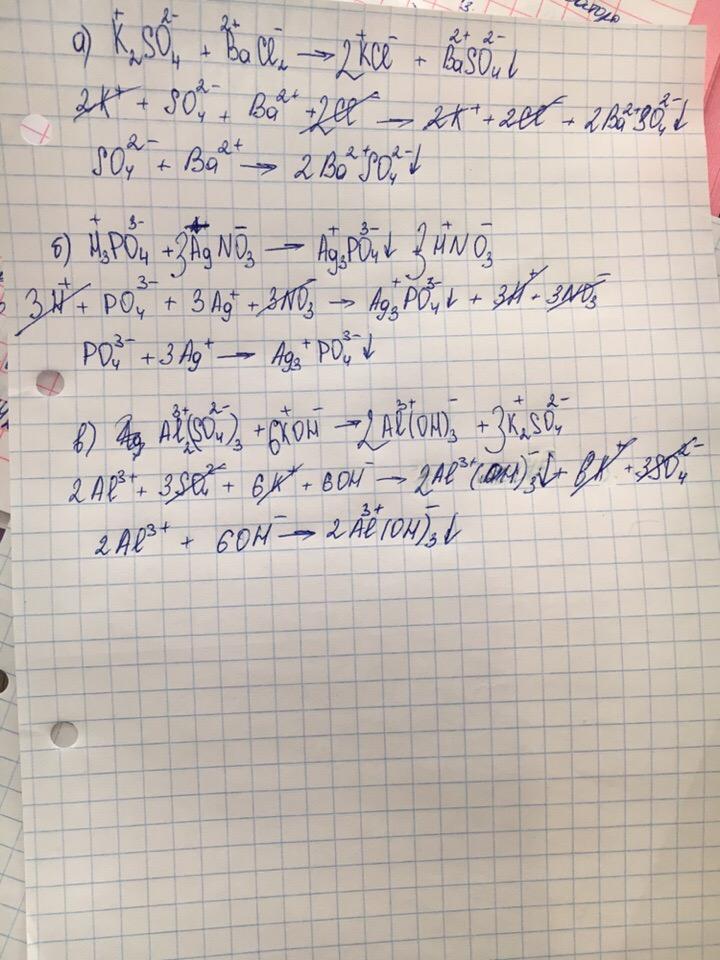 а) K⁺₂SO₄²⁻ + Ba²⁺Cl₂⁻ → 2K⁺Cl⁻ + Ba²⁺SO₄²⁻↓
2K⁺ + SO₄²⁻ + Ba²⁺ + 2Cl⁻ → 2K⁺ + 2Cl⁻ + 2Ba²⁺SO₄²⁻↓
SO₄²⁻ + Ba²⁺ → 2Ba²⁺SO₄²⁻↓
б) H⁺₃PO₄³⁻ + 3Ag⁺NO₃⁻ → Ag⁺₃PO₄³⁻↓ 3H⁺NO₃⁻
3H⁺ + PO₄³⁻ + 3Ag⁺ + 3NO₃⁻ → Ag₃⁺PO₄³⁻↓ + 3H⁺ + 3NO₃⁻
PO₄³⁻ + 3Ag⁺ → Ag₃⁺PO₄³⁻↓
в) Al³⁺₂(SO₄²⁻)₃ + 6K⁺OH⁻ → 2Al³⁺(OH)₃⁻ + 3K⁺₂SO₄²⁻
2Al³⁺ + 3SO₄²⁻ + 6K⁺ + 6OH⁻ → 2Al³⁺(OH)₃⁻↓ + 6K⁺ + 3SO₄²⁻
2Al³⁺ + 6OH⁻ → 2Al³⁺(OH)₃⁻↓